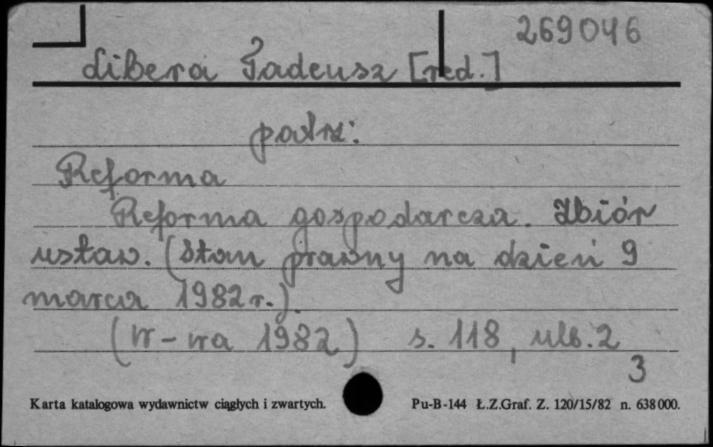 269046
Libera Tadeusz [red.]
patrz:
Reforma
Reforma gospodarcza. Zbiór
ustaw. (Stan prawny na dzień 9
marca 1982 r.).
(W-wa 1982) s. 118, ulb. 2
3
Karta katalogowa wydawnictw ciągłych i zwartych. Pu-B-144 Ł.Z.Graf. Z. 120/15/82 n. 638000.